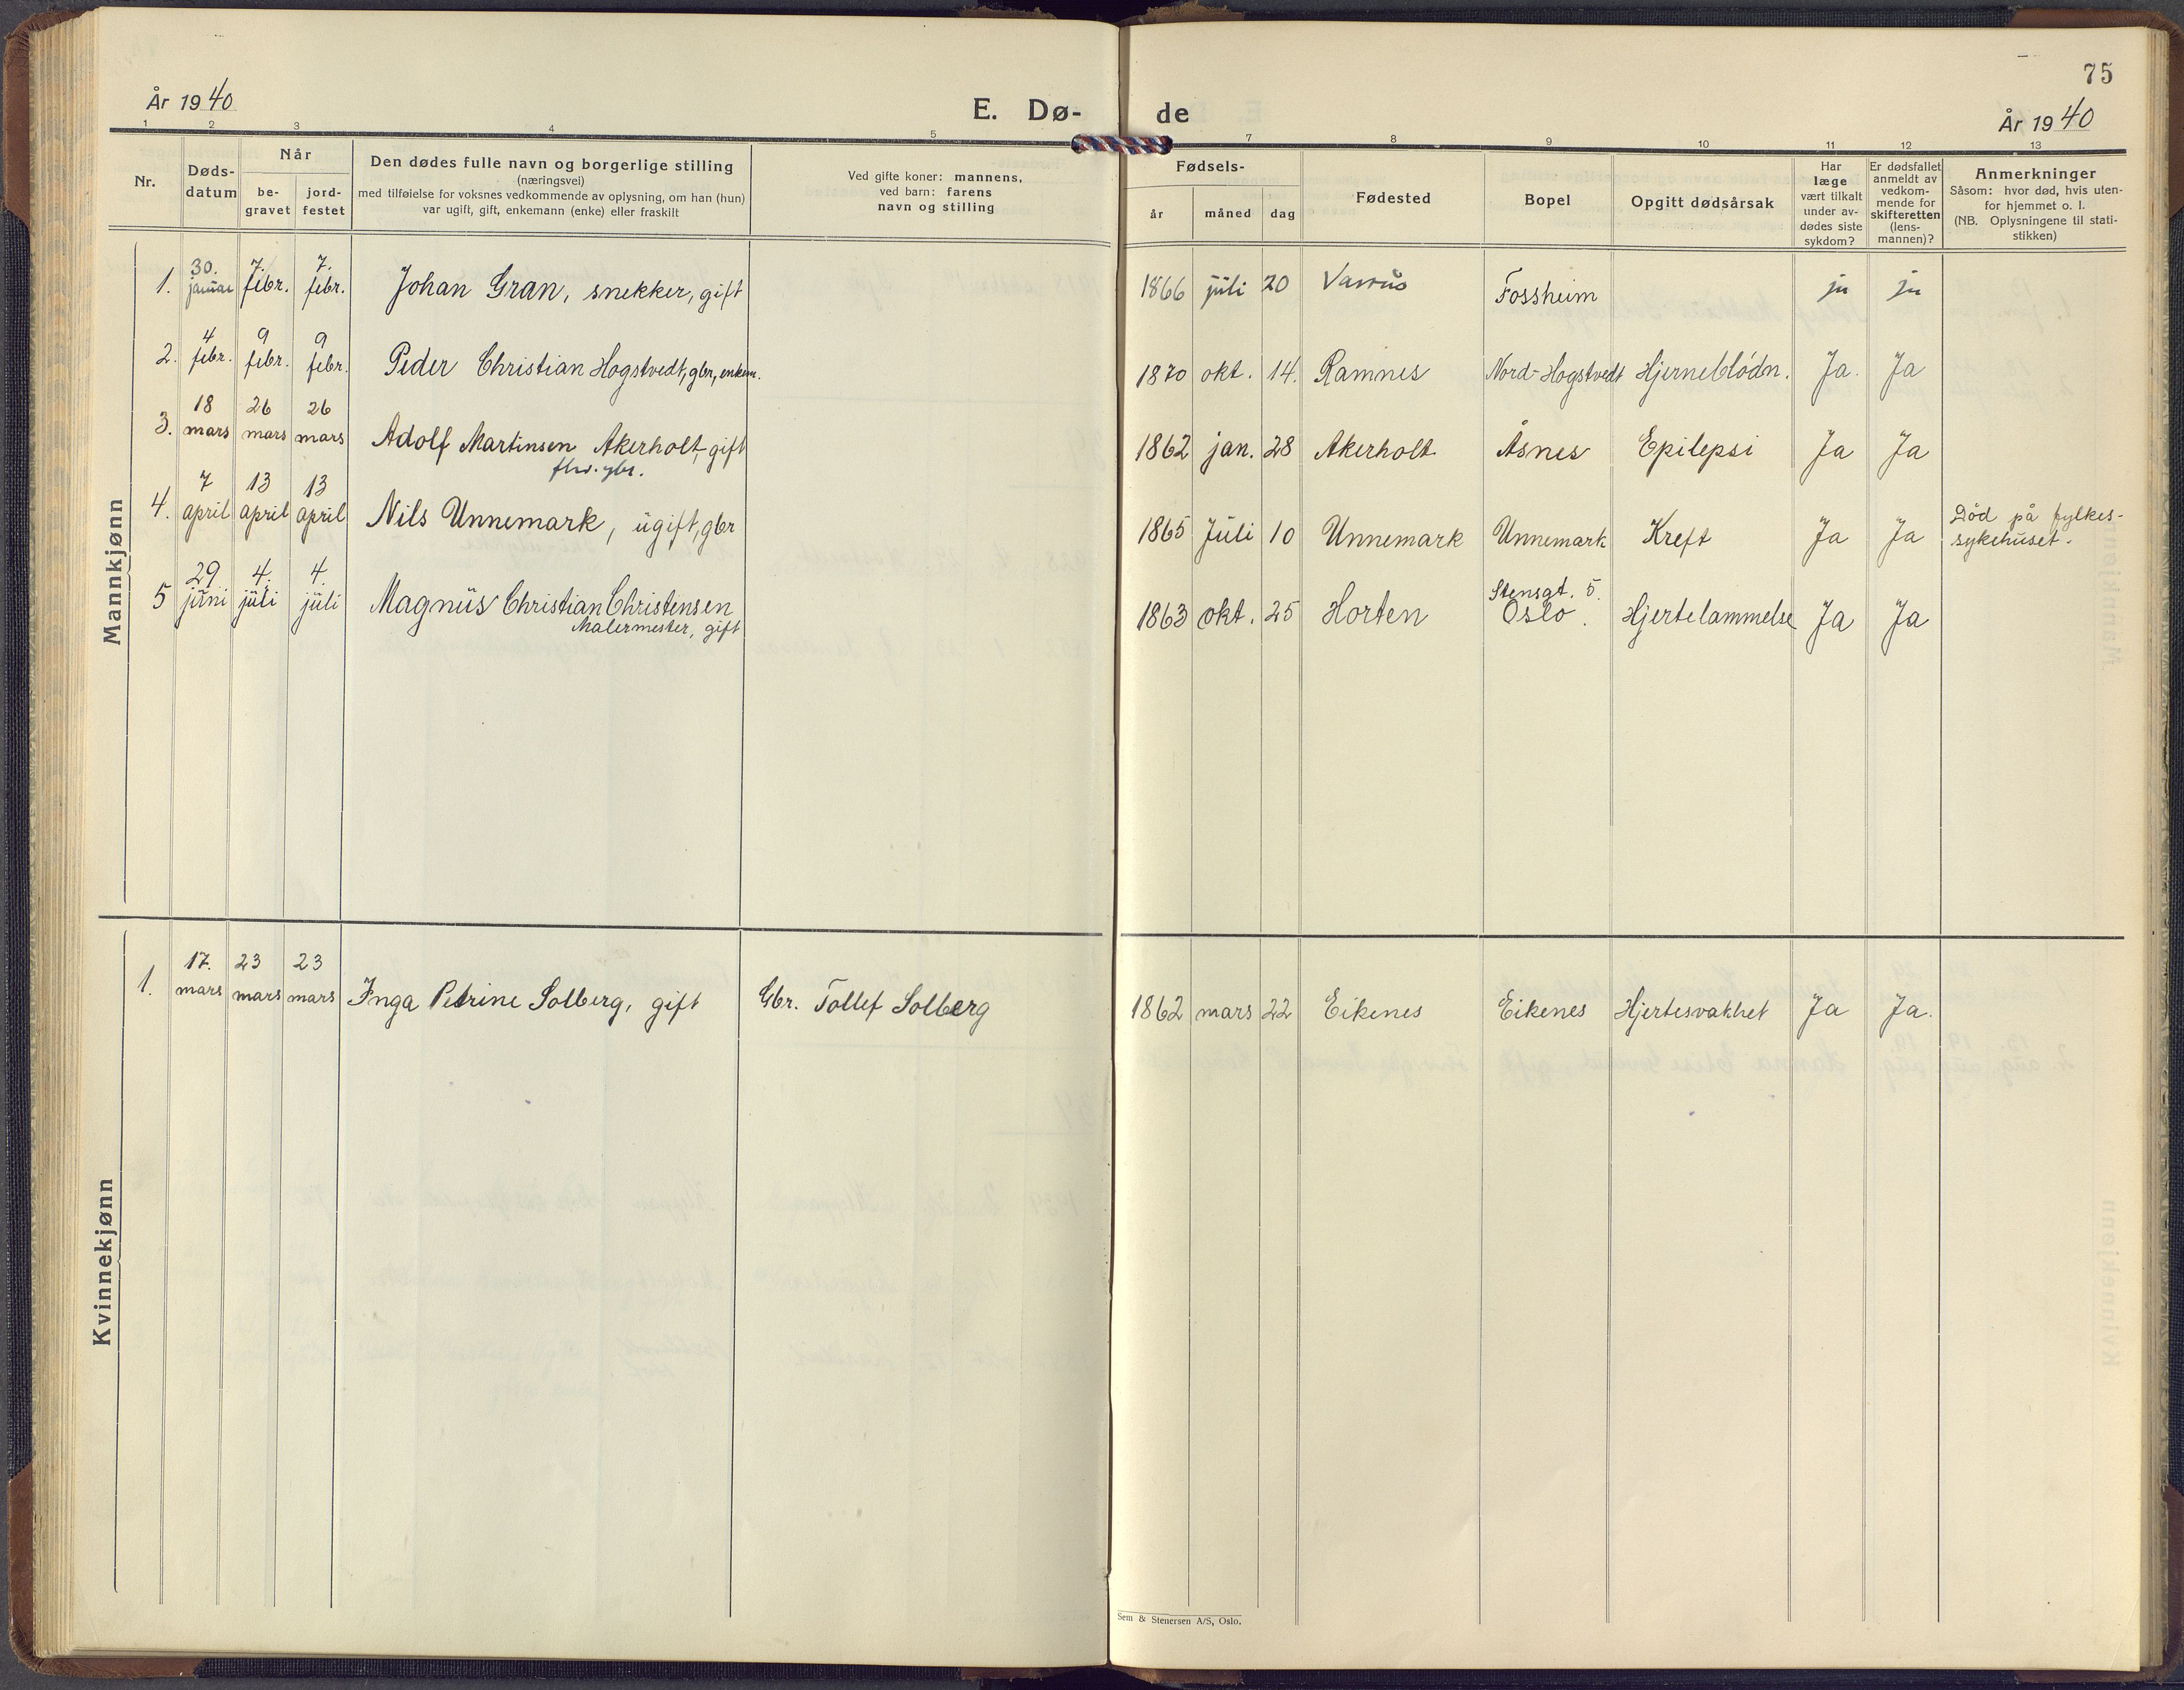 75
År 1940
E. Dø-
de
År 1940
1 2 3 4 5 7 8 9 10 11 12 13
Nr.
Døds-
datum
Når
be-
gravet
jord-
festet
Den dødes fulle navn og borgerlige stilling
(næringsvei)
med tilføielse for voksnes vedkommende av oplysning, om han (hun)
var ugift, gift, enkemann (enke) eller fraskilt
Ved gifte koner: mannens,
ved barn: farens
navn og stilling
Fødsels-
år måned dag
Fødested
Bopel
Opgitt dødsårsak
Har
læge
vært tilkalt
under av-
dødes siste
sykdom?
Er dødsfallet
anmeldt av
vedkom-
mende for
skifteretten
(lens-
mannen)?
Anmerkninger
Såsom: hvor død, hvis uten-
for hjemmet o. l.
(NB. Oplysningene til stati-
stikken)
Mannkjønn
1. 30. januar 7. febr. 7. febr. Johan Gran, snekker, gift 1866 juli 20 Fossheim ja ja
2. 4 febr. 9 febr. 9 febr. Peder Christian Hogstvedt, gbr, enkem. 1870 okt. 14. Ramnes Nord-Hogstvedt Hjerneblödn. Ja. Ja
3. 18 mars 26 mars 26 mars Adolf Martinsen Akerholt, gift
fhv. gbr.
1862 jan. 28 Akerholt Åsnes Epilepsi Ja Ja
4. 7 april 13 april 13 april Nils Unnemark, ugift, gbr 1865 Juli 10 Unnemark Unnemark Kreft Ja Ja Död på fylkes-
sykehuset.
5 29 juni 4. juli 4. juli Magnus Christian Christensen
Malermester, gift
1863 okt. 25 Horten Stensgt. 5.
Oslo. Hjertelammelse Ja Ja
Kvinnekjønn
1. 17. mars 23 mars 23 mars Inga Petrine Solberg, gift Gbr. Tollef Solberg 1862 mars 22 Eikenes Eikenes Hjertesvakhet Ja Ja.
Sem & Stenersen A/S, Oslo.